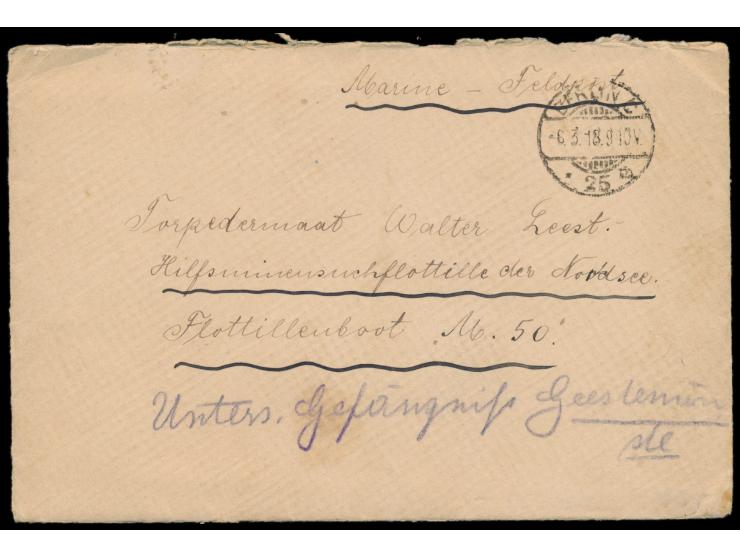 Marine – Feldpost
BERLIN C
-6.3.18.9-10V.
* 25 *
Torpedermaat Walter Leest.-
Hilfsminensuchflottille der Nordsee.
Flottillenboot "M. 50."
Unters. Gefängniß Geestemün
de